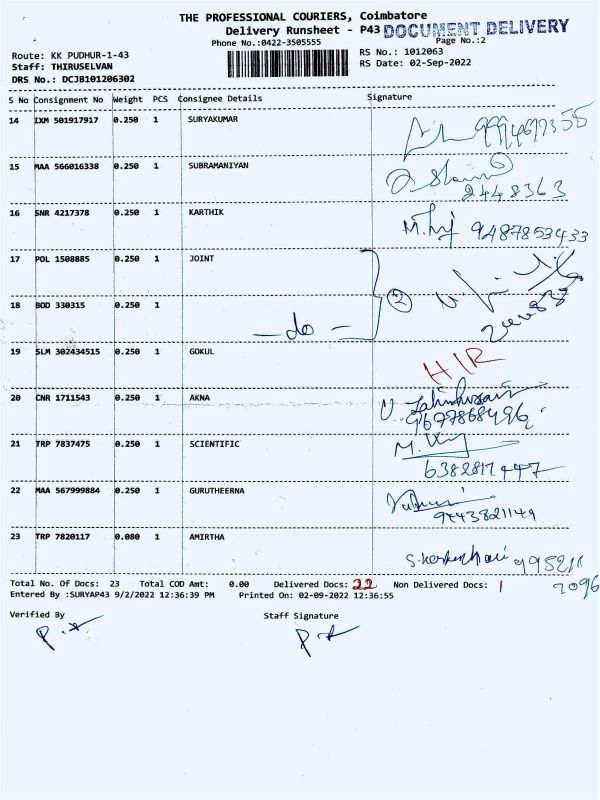 THE PROFESSIONAL COURIERS, Coimbatore
Delivery Runsheet - P43 DOCUMENT DELIVERY
Phone No.:0422-3505555 Page No.:2
Route: KK PUDHUR-1-43 RS No.: 1012063
Staff: THIRUSELVAN RS Date: 02-Sep-2022
DRS No.: DCJB101206302
S No Consignment No Weight PCS Consignee Details Signature
14 IXM 501917917 0.250 1 SURYAKUMAR
15 MAA 566016338 0.250 1 SUBRAMANIYAN
2448363
16 SNR 4217378 0.250 1 KARTHIK 9487853433
17 POL 1508885 0.250 1 JOINT
2
18 BOD 330315 0.250 1
- do -
19 SLM 302434515 0.250 1 GOKUL HIR
20 CNR 1711543 0.250 1 AKNA
9677868496
21 TRP 7837475 0.250 1 SCIENTIFIC
6382817447
22 MAA 567999884 0.250 1 GURUTHEERNA
9443821149
23 TRP 7820117 0.080 1 AMIRTHA
Total No. Of Docs: 23 Total COD Amt: 0.00 Delivered Docs: 22 Non Delivered Docs: 1
Entered By :SURYAP43 9/2/2022 12:36:39 PM Printed On: 02-09-2022 12:36:55
Verified By Staff Signature